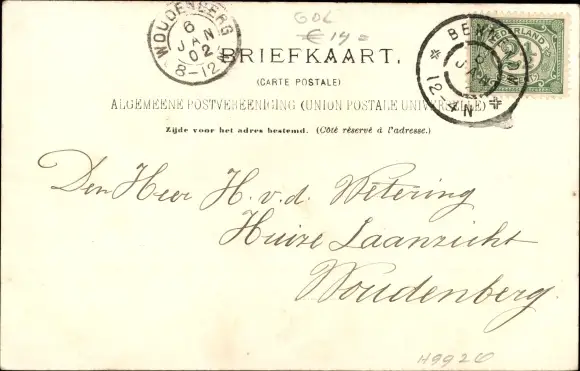 WOUDENBERG
6
JAN
02
8-12V
GOL
€ 14=
BENN
6
JAN
12-4N
NEDERLAND
2½
BRIEFKAART.
(CARTE POSTALE)
ALGEMEENE POSTVEREENIGING (UNION POSTALE UNIVERSELLE)
Zijde voor het adres bestemd. (Côté réservé à l'adresse.)
Den Heer H. v. d. Wetering
Huize Laanzicht
Woudenberg.
H9926